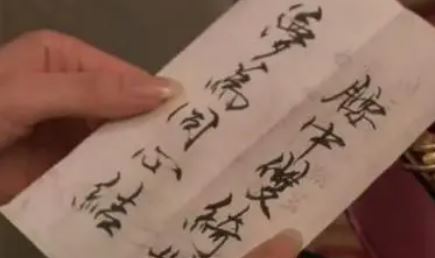 腰中雙綺
夢為同心結